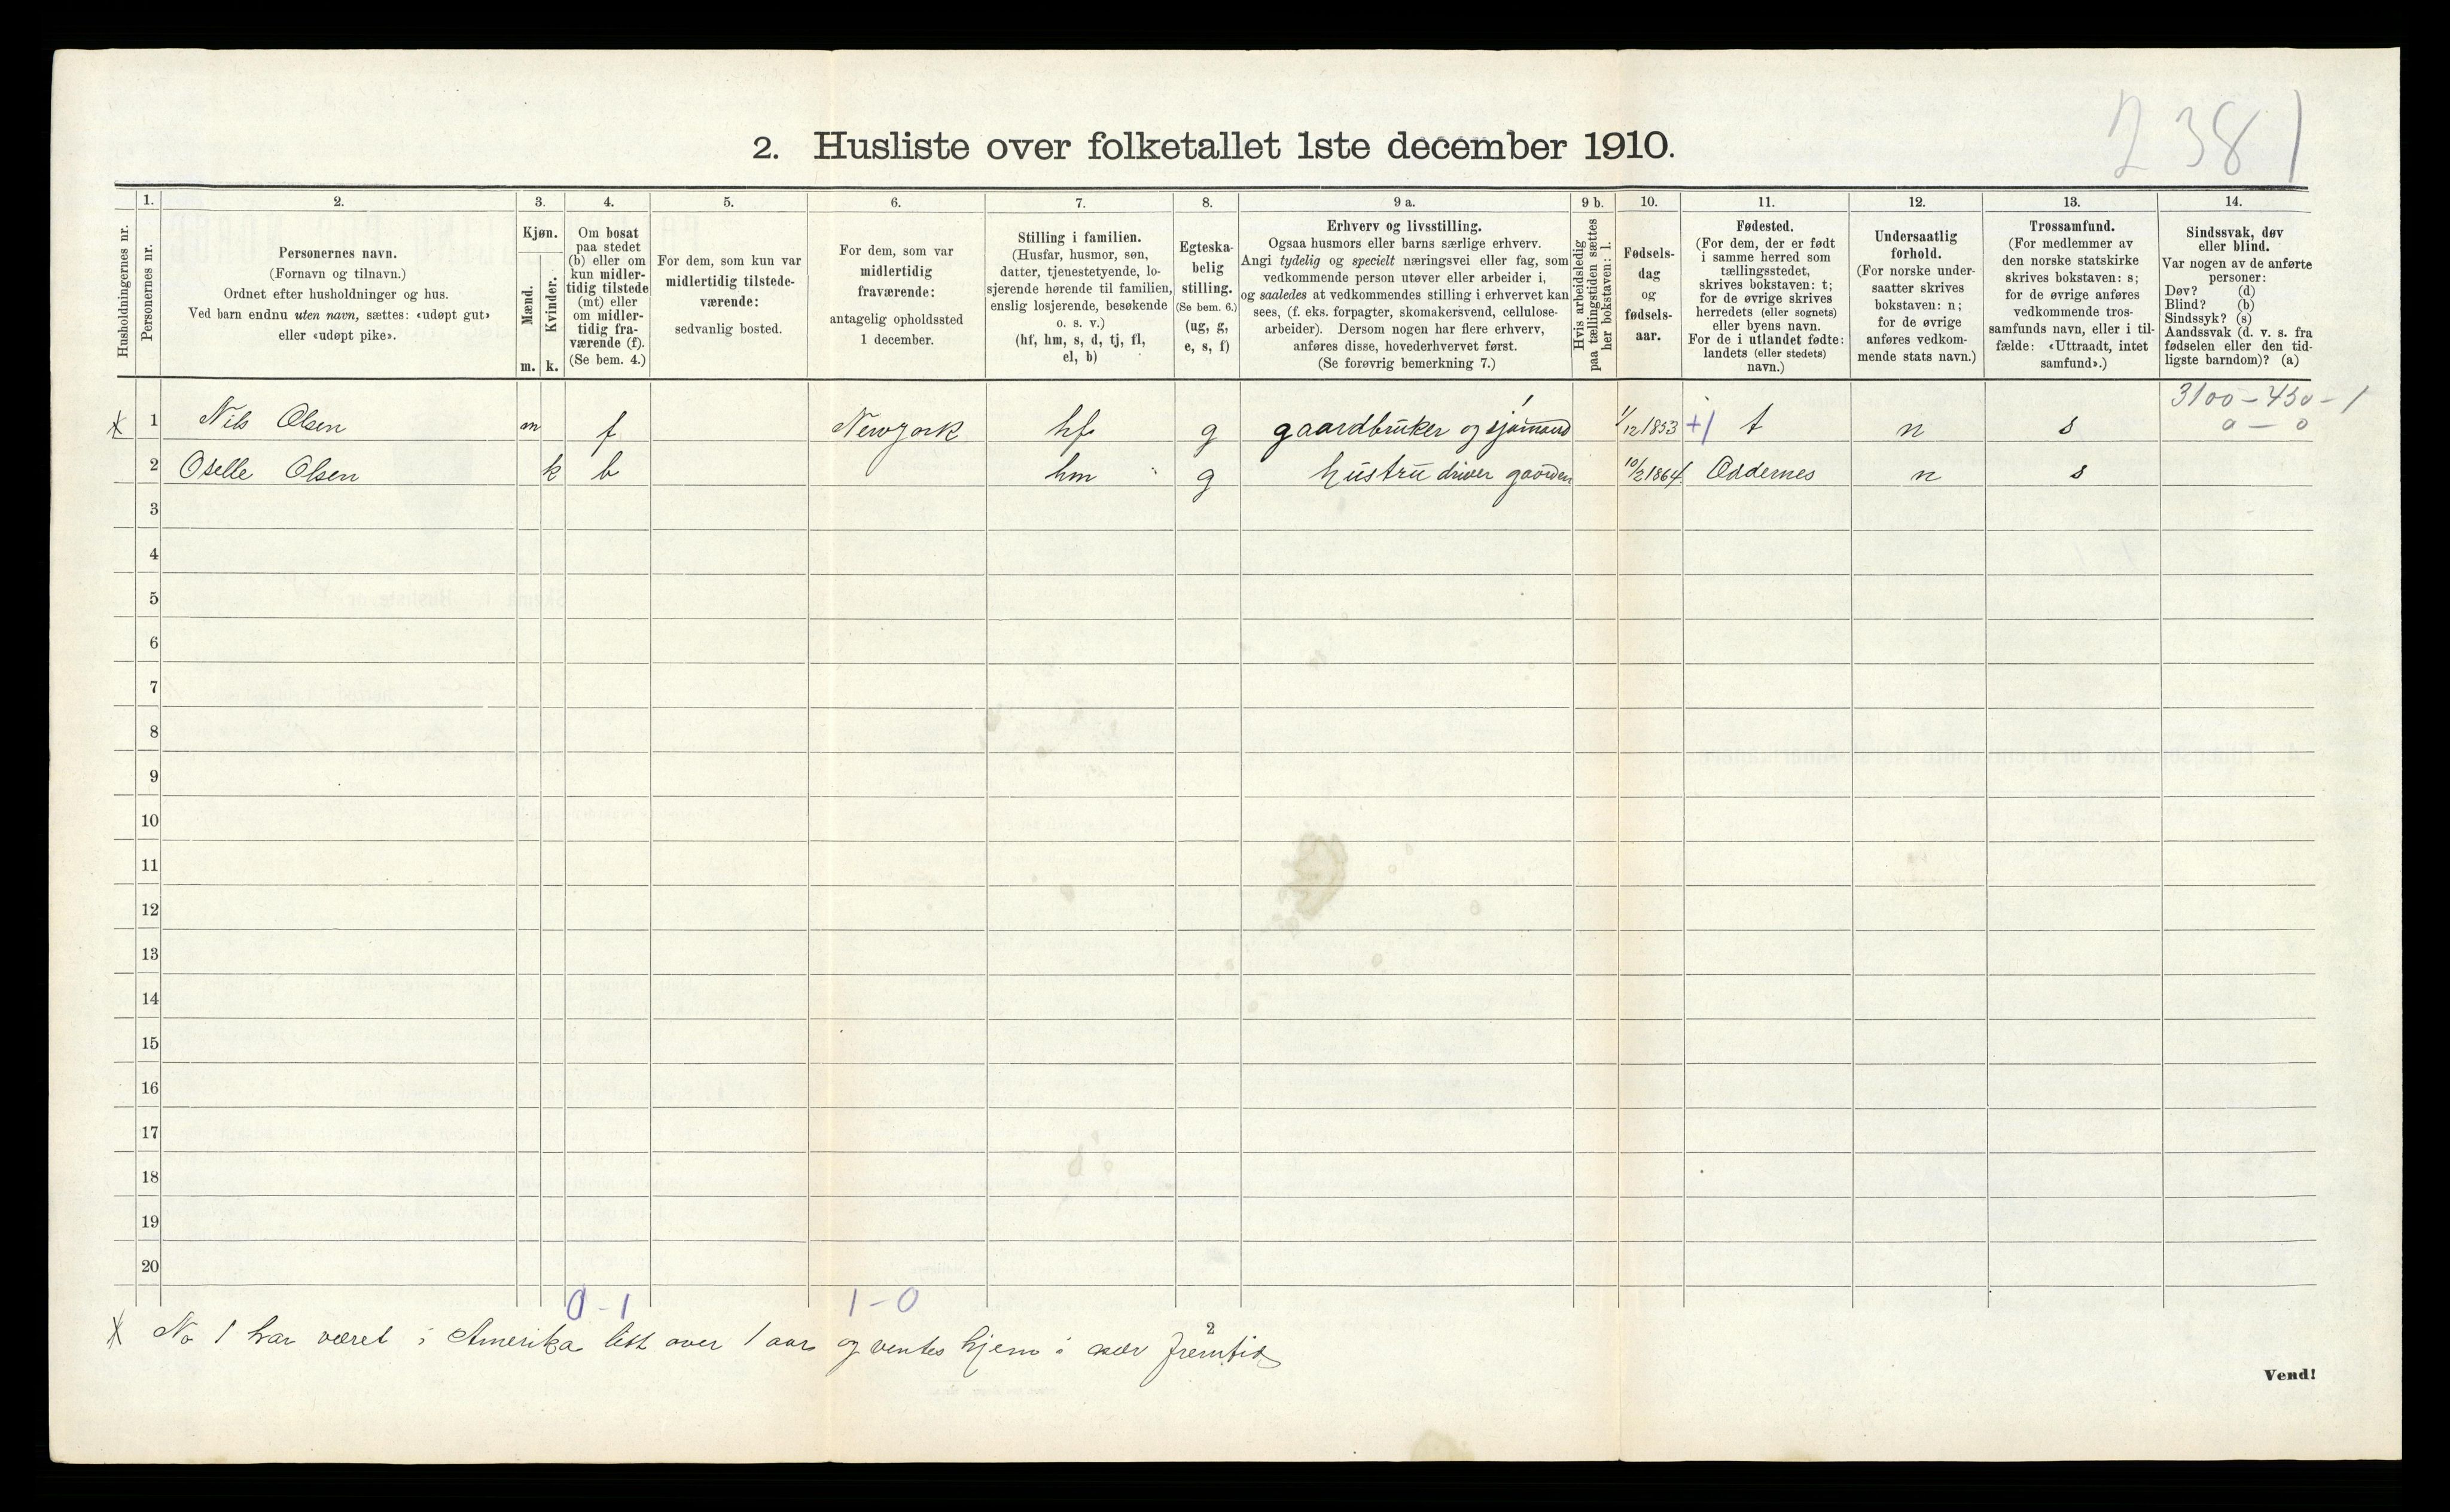 2381
2. Husliste over folketallet 1ste december 1910.
Husholdningernes nr.
1.
Personernes nr.
2.
Personernes navn.
(Fornavn og tilnavn.)
Ordnet efter husholdninger og hus.
Ved barn endnu uten navn, sættes: «udøpt gut»
eller «udøpt pike».
3.
Kjøn.
Mænd.
Kvinder.
m. k.
4.
Om bosat
paa stedet
(b) eller om
kun midler-
tidig tilstede
(mt) eller
om midler-
tidig fra-
værende (f).
(Se bem. 4.)
5.
For dem, som kun var
midlertidig tilstede-
værende:
sedvanlig bosted.
6.
For dem, som var
midlertidig
fraværende:
antagelig opholdssted
1 december.
7.
Stilling i familien.
(Husfar, husmor, søn,
datter, tjenestetyende, lo-
sjerende hørende til familien,
enslig losjerende, besøkende
o. s. v.)
(hf, hm, s, d, tj, fl,
el, b)
8.
Egteska-
belig
stilling.
(Se bem. 6.)
(ug, g,
e, s, f)
9 a.
Erhverv og livsstilling.
Ogsaa husmors eller barns særlige erhverv.
Angi tydelig og specielt næringsvei eller fag, som
vedkommende person utøver eller arbeider i,
og saaledes at vedkommendes stilling i erhvervet kan
sees, (f. eks. forpagter, skomakersvend, cellulose-
arbeider). Dersom nogen har flere erhverv,
anføres disse, hovederhvervet først.
(Se forøvrig bemerkning 7.)
9 b.
Hvis arbeidsledig
paa tællingstiden sættes
her bokstaven: l.
10.
Fødsels-
dag
og
fødsels-
aar.
11.
Fødested.
(For dem, der er født
i samme herred som
tællingsstedet,
skrives bokstaven: t;
for de øvrige skrives
herredets (eller sognets)
eller byens navn.
For de i utlandet fødte:
landets (eller stedets)
navn.)
12.
Undersaatlig
forhold.
(For norske under-
saatter skrives
bokstaven: n;
for de øvrige
anføres vedkom-
mende stats navn.)
13.
Trossamfund.
(For medlemmer av
den norske statskirke
skrives bokstaven: s;
for de øvrige anføres
vedkommende tros-
samfunds navn, eller i til-
fælde: «Uttraadt, intet
samfund».)
14.
Sindssvak, døv
eller blind.
Var nogen av de anførte
personer:
Døv? (d)
Blind? (b)
Sindssyk? (s)
Aandssvak (d. v. s. fra
fødselen eller den tid-
ligste barndom)? (a)
3100 - 450 - 1
0 - 0
x 1 Nils Olsen m f Newyork hf g gaardbruker og sjømand 1/12 1853 +1 t n s
2 Oselle Olsen k b hm g hustru driver gaarden 10/2 1864 Oddernes n s
3
4
5
6
7
8
9
10
11
12
13
14
15
16
17
18
19
20
0-1 1-0
x No 1 har været i Amerika litt over 1 aar og ventes hjem i nær fremtid
2
Vend!